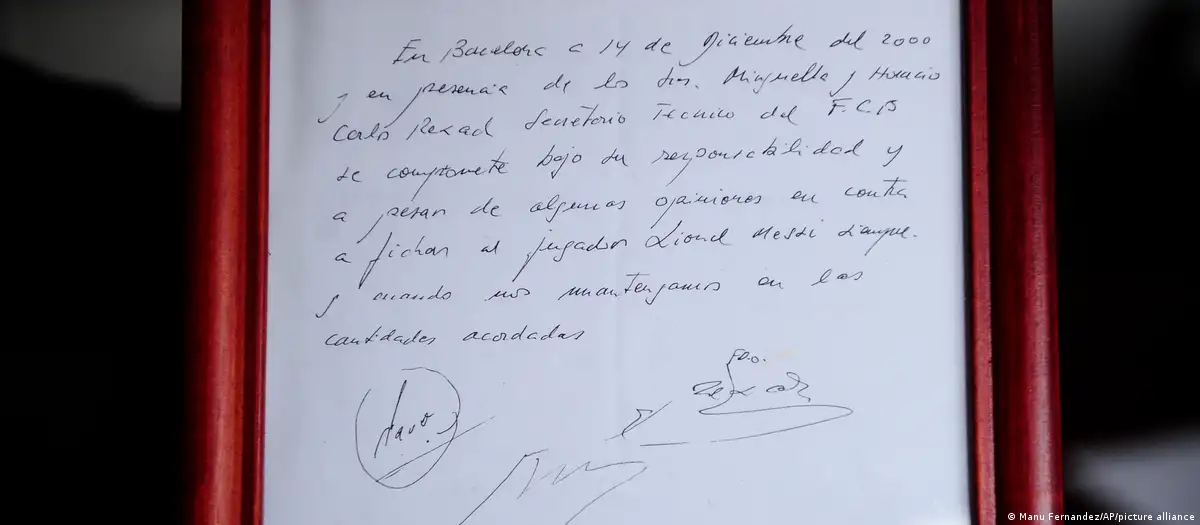 En Barcelona a 14 de Diciembre del 2000
y en presencia de los Srs. Minguella y Horacio
Carlos Rexach Secretario Tecnico del F.C.B
se compromete bajo su responsabilidad y
a pesar de algunas opiniones en contra
a fichar al jugador Lionel Messi siempre.
y cuando nos mantengamos en las
cantidades acordadas
FDO.
© Manu Fernandez/AP/picture alliance